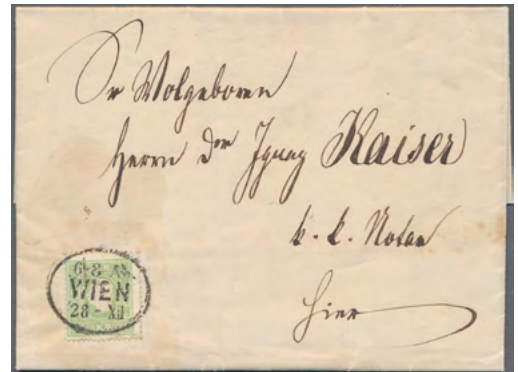 Sr Wolgeboren
Herrn Dor Ignaz Kaiser
k. k. Notar
Hier
6-8 
WIEN
28 - XII